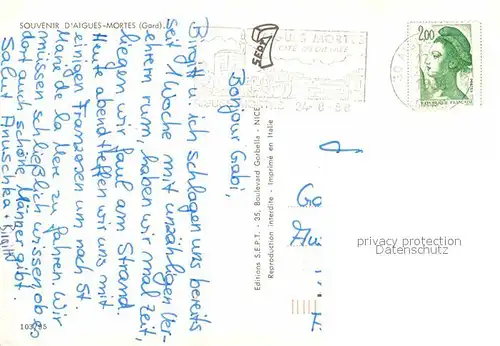 SOUVENIR D'AIGUES-MORTES (Gard)
Bonjour Gabi,
Birgitt u. ich schlagen uns bereits
seit 1 Woche mit unzähligen Ver-
ehrern rum, haben wir mal Zeit,
liegen wir faul am Strand.
Heute abend treffen wir uns mit
einigen Franzosen um nach St.
Marie de la Mer zu fahren. Wir
müssen schließlich wissen, ob es
dort auch schöne Männer gibt.
Salut Anuschka + Birgitt
103/95
Editions S.E.P.T. - 35, Boulevard Gorbella - NICE
Reproduction interdite - Imprimé en Italie
AIGUES MORTES
24-8-88
30 A
2,00
REPUBLIQUE FRANÇAISE
Ga
privacy protection
Datenschutz